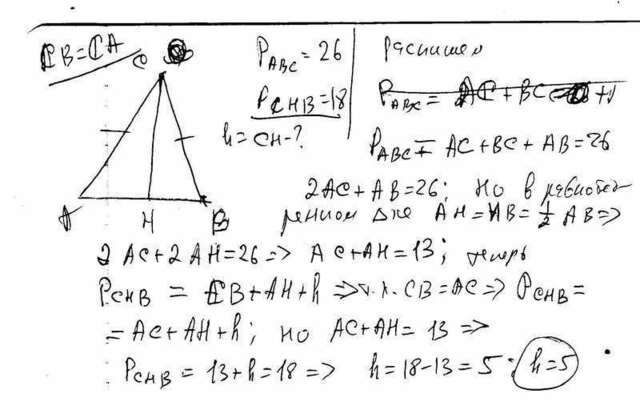 CB=CA
C
A
H
B
P_ABC = 26
P_CHB = 18
h = CH - ?
Распишем
P_ABC = AC + BC
P_ABC = AC + BC + AB = 26
2AC + AB = 26; но в равнобед
ренном Δ-ке AH = HB = ½ AB =>
2AC + 2AH = 26 => AC + AH = 13; теперь
P_CHB = CB + AH + h => т.к. CB = AC => P_CHB =
= AC + AH + h; но AC + AH = 13 =>
P_CHB = 13 + h = 18 => h = 18 - 13 = 5; h = 5